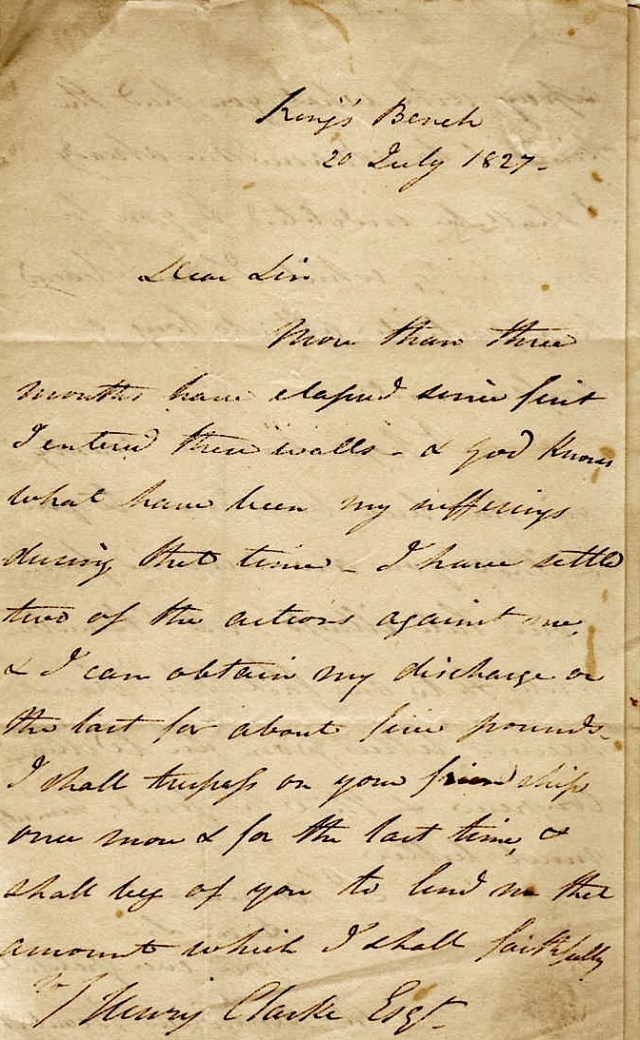 King's Bench
20 July 1827-
Dear Sir
More than three
months have elapsed since first
I entered these walls - & God knows
what have been my sufferings
during that time - I have settled
two of the actions against me,
& I can obtain my discharge on
the last for about five pounds.
I shall trespass on your friendship
once more & for the last time, &
shall beg of you to lend me that
amount which I shall faithfully
Henry Clarke Esqr.